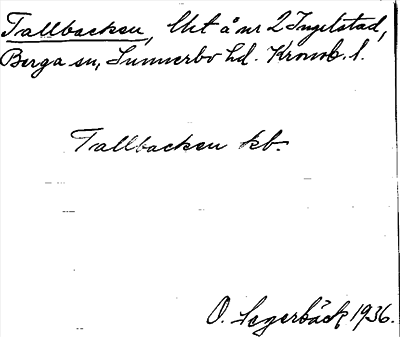 Tallbacken, lht å nr 2 Ingelstad,
Berga sn, Sunnerbo hd. Kronob. l.
Tallbacken kb.
O. Segerbäck 1936.